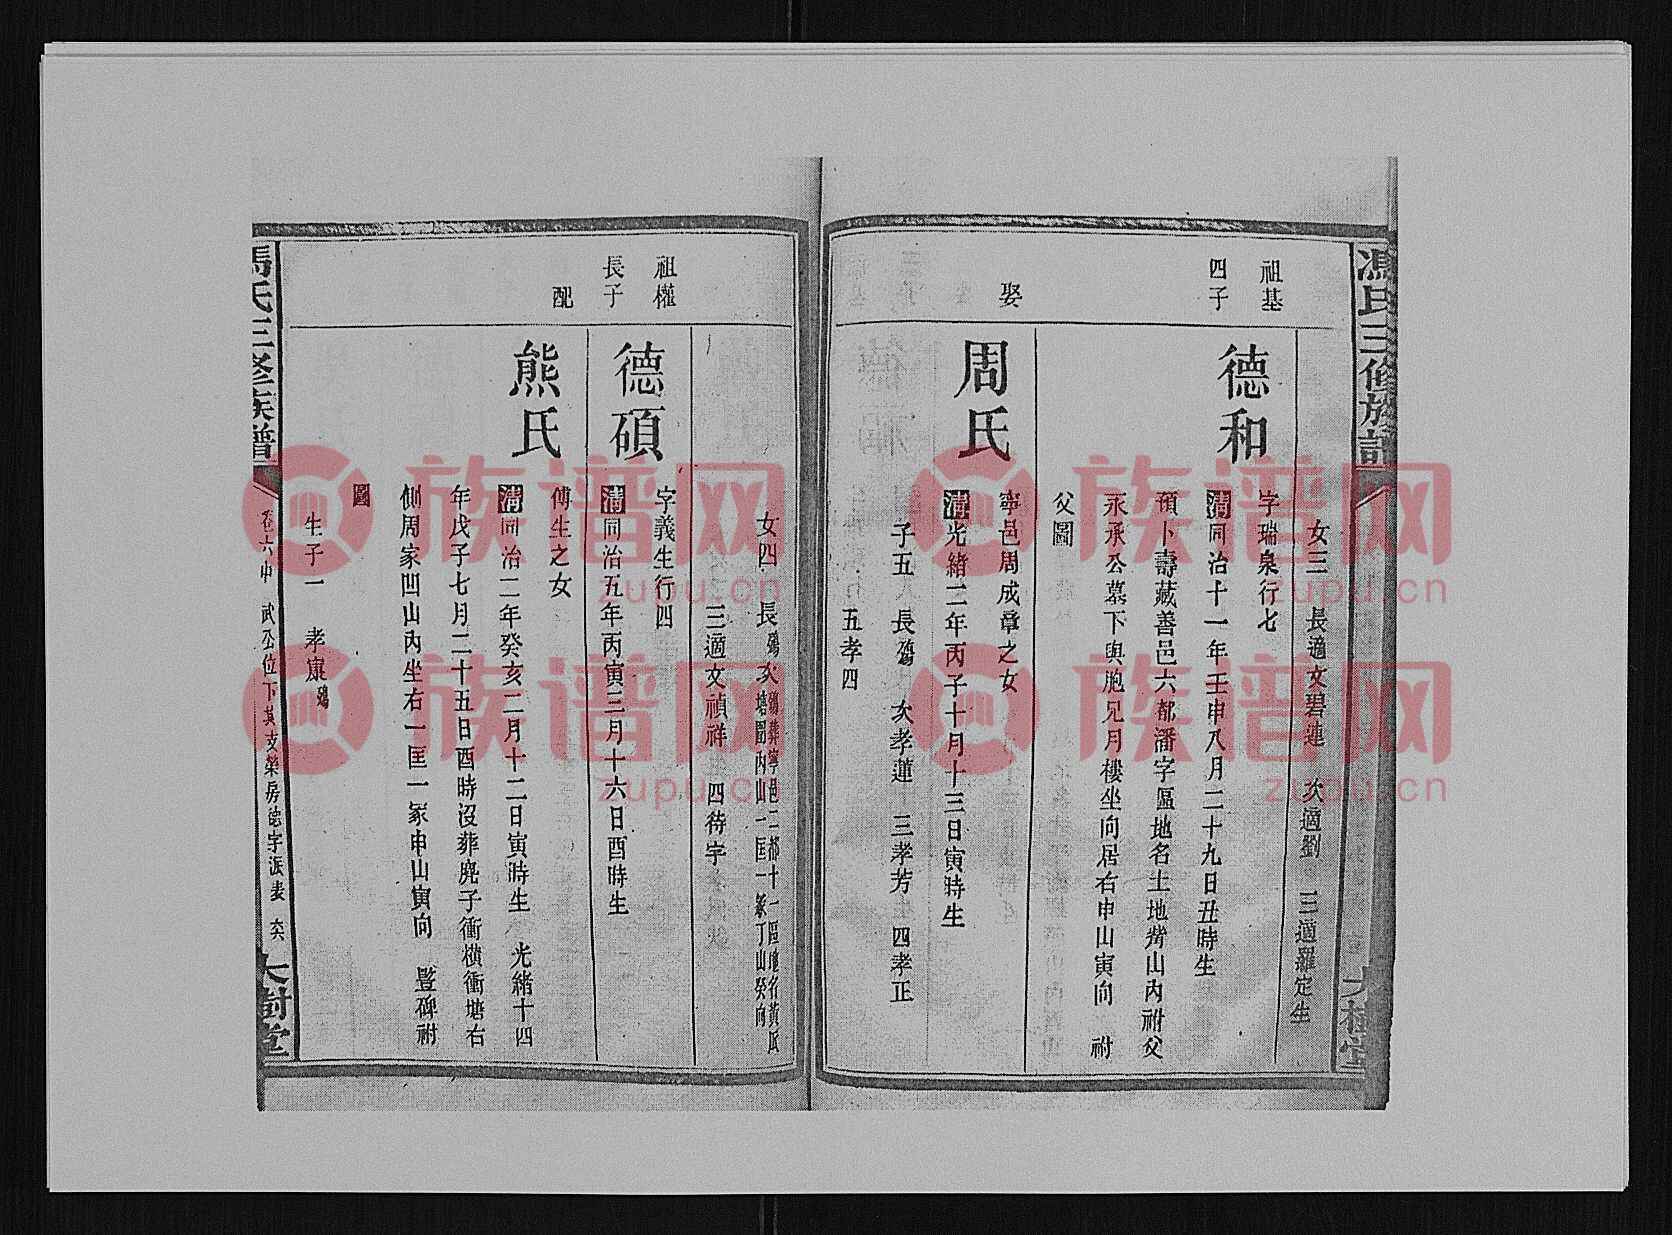 馮氏三修族譜
大樹堂
女三　長適文碧蓮　次適劉　三適羅定生
祖基
四子
德和
字瑞泉行七
清同治十一年壬申八月二十九日丑時生
預卜壽藏善邑六都潘字區地名土地嘴山內祔父
永承公墓下與胞兄月樓坐向居右申山寅向　祔
父圖
娶
周氏
寧邑周成章之女
清光緒二年丙子十月十三日寅時生
子五　長殤　次孝蓮　三孝芳　四孝正
五孝四
女四　長殤次殤葬寧邑二都十一區地名黃氏
塘圍內山一匡一冢丁山癸向
三適文禎祥　四待字
祖權
長子
德碩
字義生行四
清同治五年丙寅三月十六日酉時生
配
熊氏
傅生之女
清同治二年癸亥二月十二日寅時生　光緒十四
年戊子七月二十五日酉時沒葬麂子衝橫衝塘右
側周家凹山內坐右一匡一冢申山寅向　豎碑祔
圖
生子一　孝康殤
馮氏三修族譜
卷六中　武公位下其支榮房德字派表　奕
大樹堂
族谱网
zupu.cn
族谱网
zupu.cn
族谱网
zupu.cn
族谱网
zupu.cn